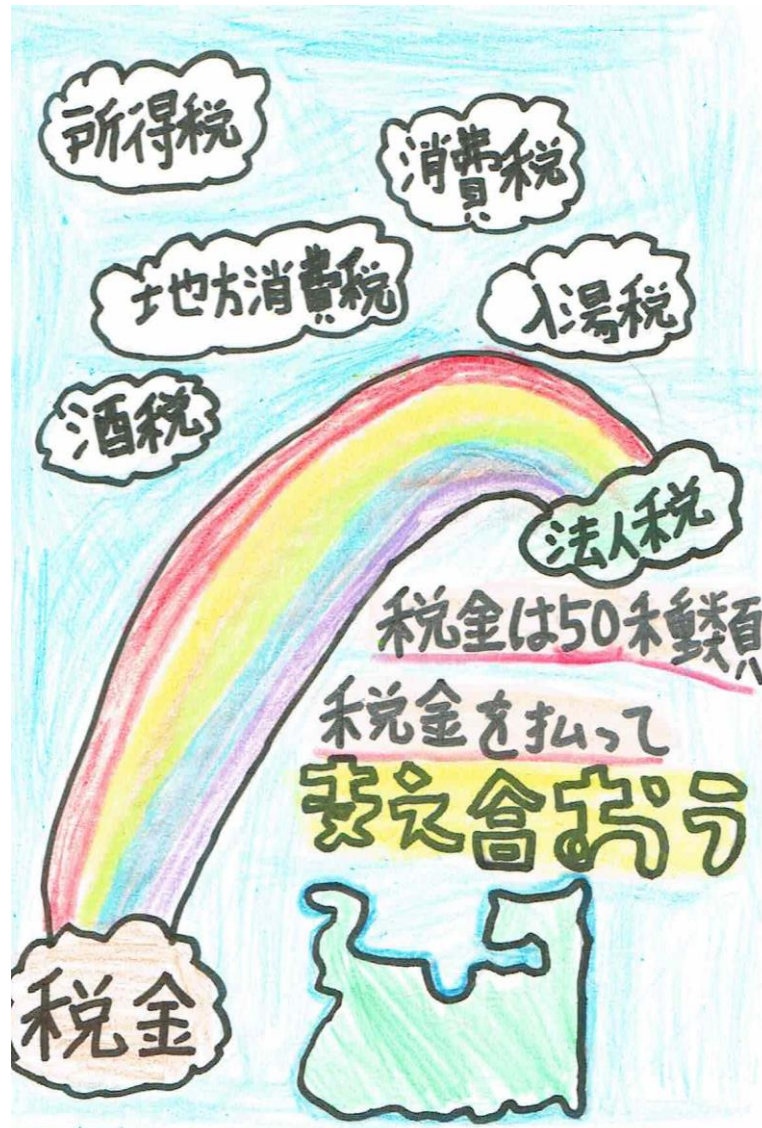 所得税
消費税
地方消費税
入湯税
酒税
法人税
税金は50種類
税金を払って
支え合おう
税金